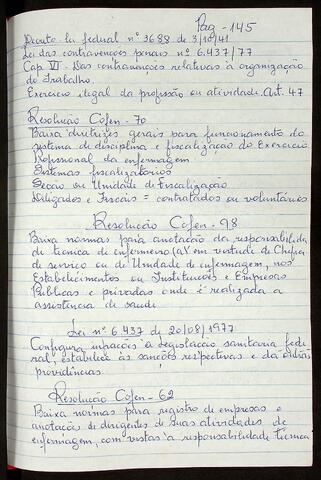 Pag - 145
Decreto-lei federal nº 3688 de 3/10/41
Lei das contravencoes penais nº 6.437/77
Cap. VI - Das contravenções relativas à organização
do Trabalho.
Exercicio ilegal da profissão ou atividade. Art. 47
Resolução Cofen - 70
Baixa diretrizes gerais para funcionamento do
sistema de disciplina e fiscalização do Exercicio
Profissional da enfermagem
Sistemas fiscalizatórios
Secão ou Unidade de Fiscalização
Delegados e Fiscais = contratados ou voluntários
Resolução Cofen - 98
Baixa normas para anotação da responsabilida
de tecnica de enfermeiro (a) em virtude de Chefia
de serviço ou de Unidade de enfermagem, nos
Estabelecimentos ou Instituicoes e Empresas
Publicas e privadas onde é realizada a
assistencia de saude
Lei nº 6.437 de 20/08/1977
Configura infrações à legislação sanitaria fede
ral, estabelece as sanções respectivas e da outras
providências.
Resolução Cofen - 62
Baixa normas para registro de empresas e
anotação de dirigentes de suas atividades de
enfermagem, com vistas à responsabilidade tecnica